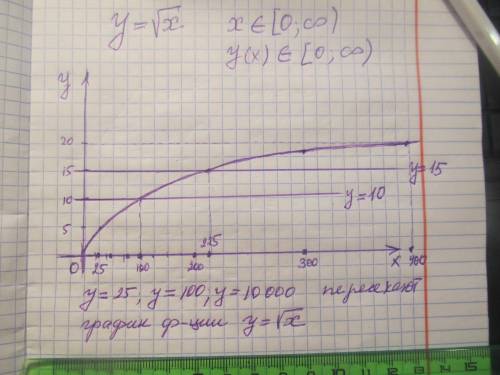 y=√x x∈[0;∞)
y(x)∈[0;∞)
y
20
15
y=15
10
y=10
5
0 25 100 200 225 300 x 900
y=25, y=100, y=10000 пересекают
график ф-ции y=√x
8 9 10 11 12 13 14 15